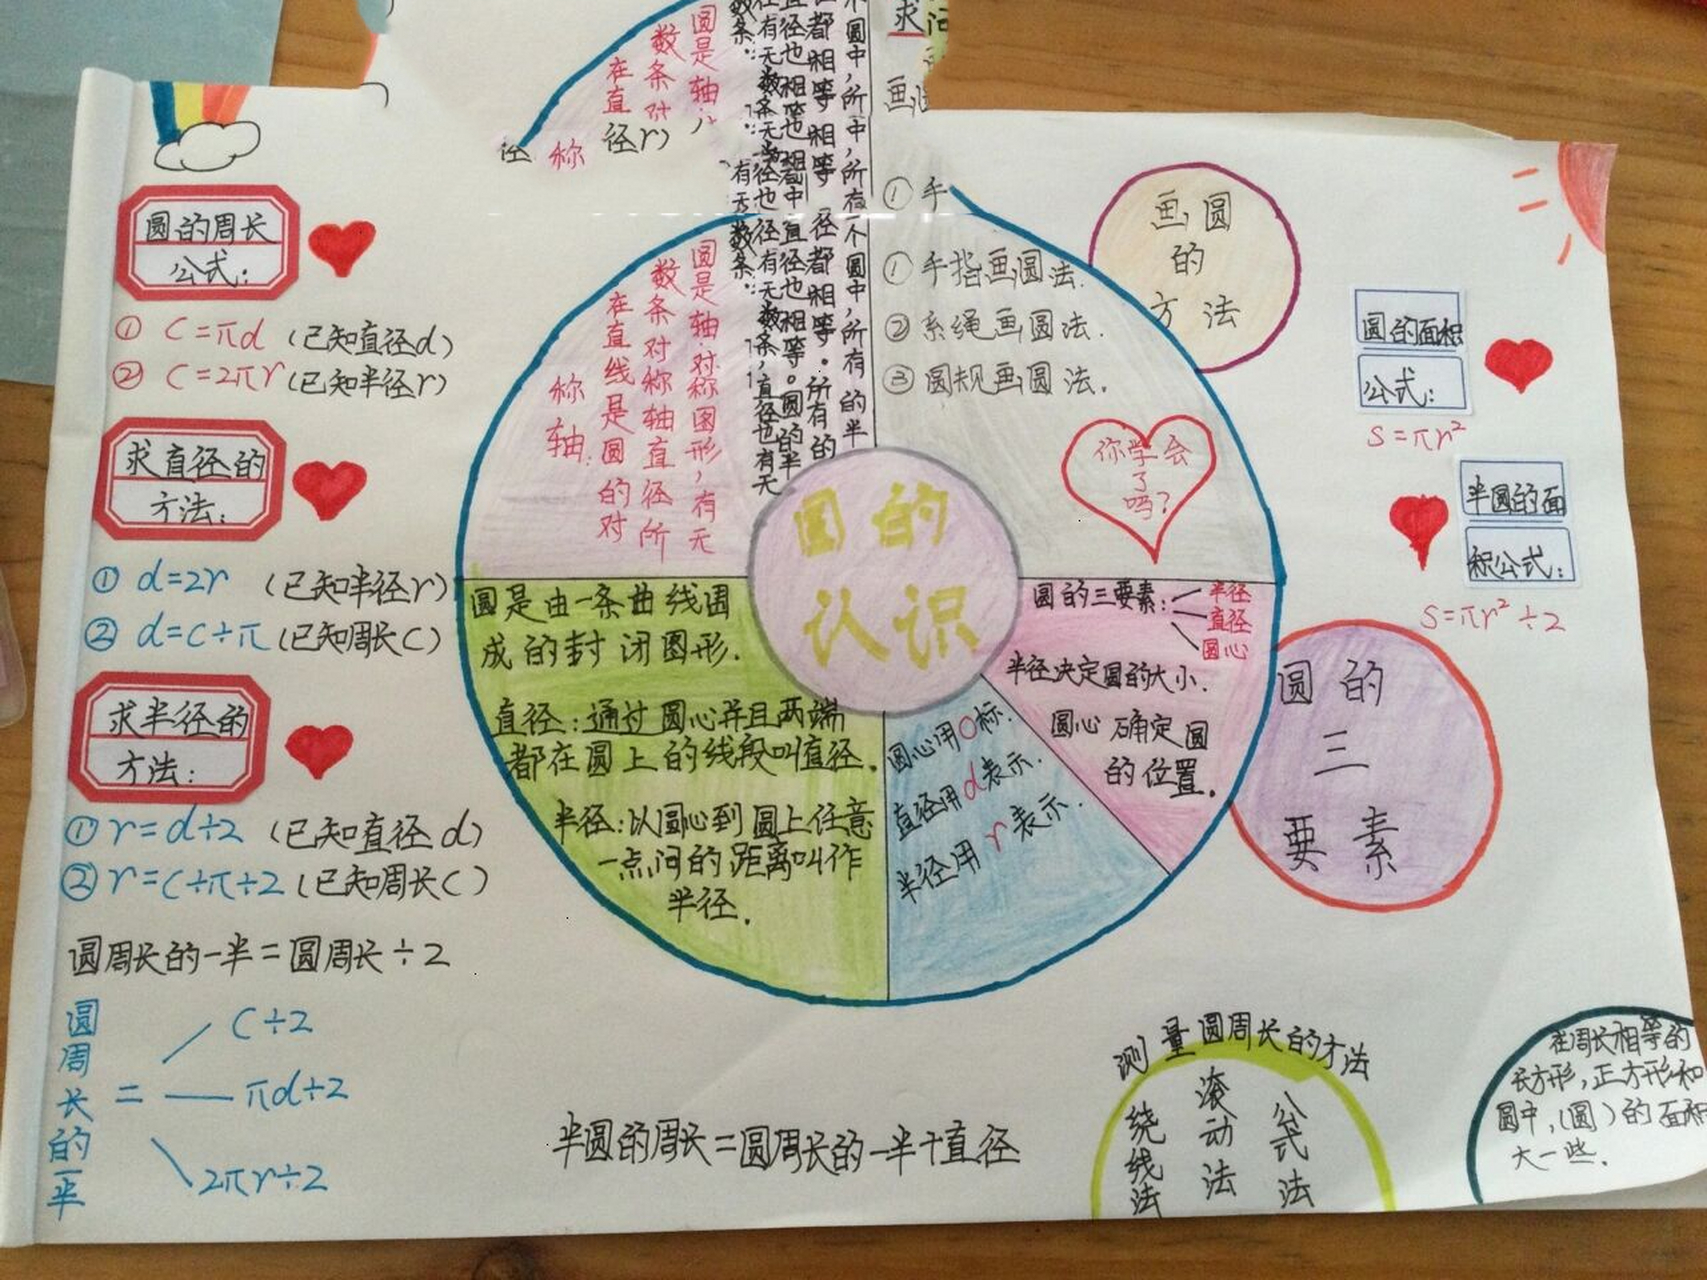 圆的周长
公式:
① C=πd (已知直径d)
② C=2πr (已知半径r)
求直径的
方法:
① d=2r (已知半径r)
② d=C÷π (已知周长C)
求半径的
方法:
① r=d÷2 (已知直径d)
② r=C÷π÷2 (已知周长C)
圆周长的一半=圆周长÷2
圆周长的一半
=
C÷2
πd÷2
2πr÷2
圆是轴
数条对
在直
径r)
称
圆是轴对称图形,有无
数条对称轴直径所
在直线是圆的对
称轴.
圆的
认识
① 手
① 手指画圆法.
② 系绳画圆法.
③ 圆规画圆法.
你学会
了
吗?
画圆
的
方法
圆是由一条曲线围
成的封闭图形.
直径:通过圆心并且两端
都在圆上的线段叫直径.
半径:以圆心到圆上任意
一点间的距离叫作
半径.
圆心用O标.
直径用d表示.
半径用r表示.
圆的三要素:
半径
直径
圆心
半径决定圆的大小.
圆心确定圆
的位置.
圆的
三
要素
圆的面积
公式:
S=πr²
半圆的面
积公式:
S=πr²÷2
半圆的周长=圆周长的一半+直径
测量圆周长的方法
绕线法
滚动法
公式法
在周长相等的
长方形,正方形和
圆中,(圆)的面积
大一些.